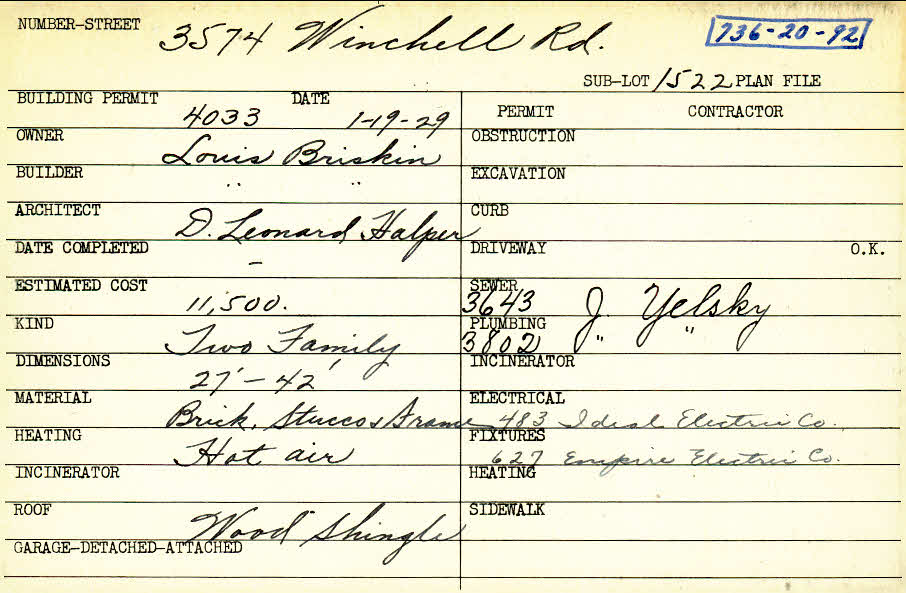 NUMBER-STREET 3574 Winchell Rd. 736-20-92
SUB-LOT 1522 PLAN FILE
BUILDING PERMIT 4033 DATE 1-19-29
PERMIT CONTRACTOR
OWNER Louis Briskin
OBSTRUCTION
BUILDER " "
EXCAVATION
ARCHITECT D. Leonard Halper
CURB
DATE COMPLETED -
DRIVEWAY O.K.
ESTIMATED COST 11,500.
SEWER 3643 J. Yelsky
KIND Two Family
PLUMBING 3802 " "
DIMENSIONS 27' - 42'
INCINERATOR
MATERIAL Brick, Stucco & Frame
ELECTRICAL 483 Ideal Electric Co.
HEATING Hot air
FIXTURES 627 Empire Electric Co.
INCINERATOR
HEATING
ROOF Wood Shingle
SIDEWALK
GARAGE-DETACHED-ATTACHED